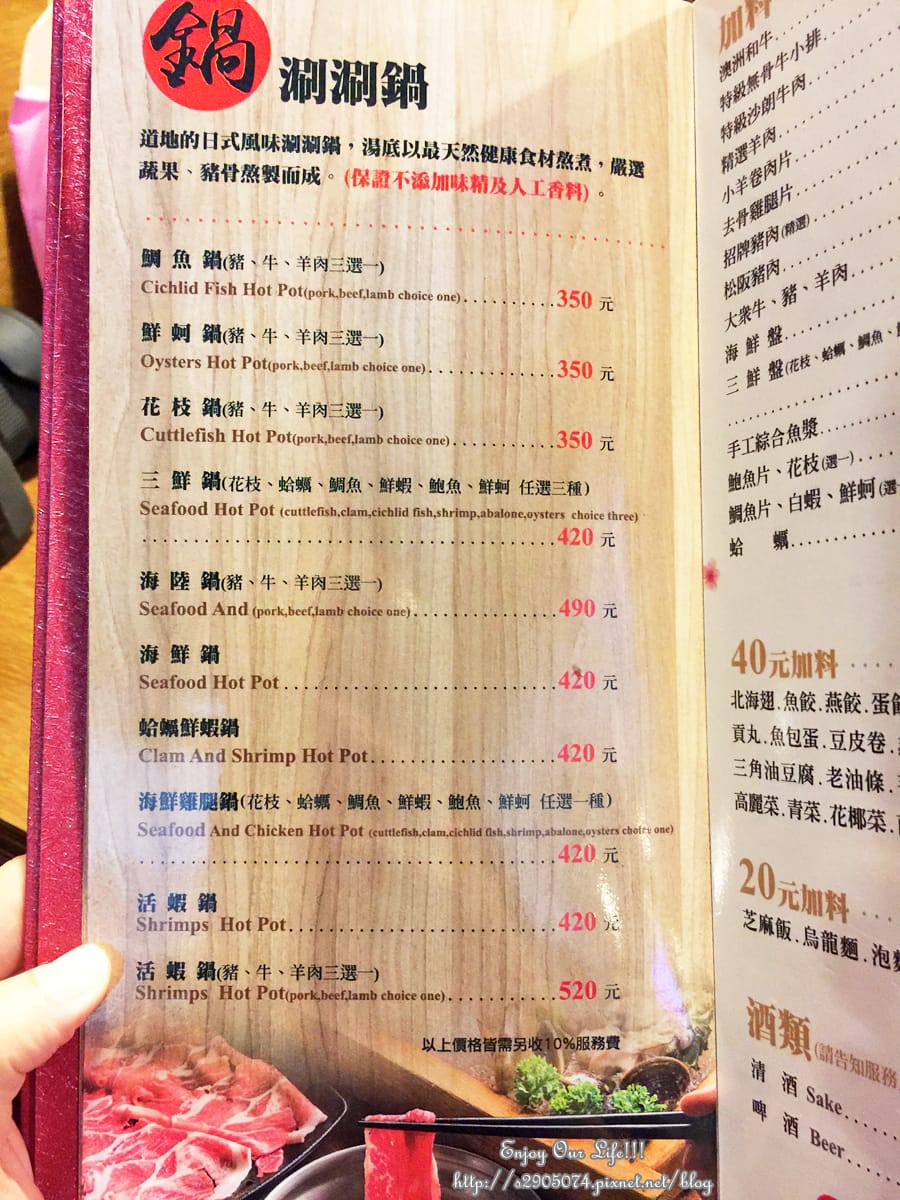 鍋 涮涮鍋
道地的日式風味涮涮鍋，湯底以最天然健康食材熬煮，嚴選
蔬果、豬骨熬製而成。(保證不添加味精及人工香料)。
鯛魚鍋(豬、牛、羊肉三選一)
Cichlid Fish Hot Pot(pork,beef,lamb choice one)..........350元
鮮蚵鍋(豬、牛、羊肉三選一)
Oysters Hot Pot(pork,beef,lamb choice one)..............350元
花枝鍋(豬、牛、羊肉三選一)
Cuttlefish Hot Pot(pork,beef,lamb choice one)...........350元
三鮮鍋(花枝、蛤蠣、鯛魚、鮮蝦、鮑魚、鮮蚵 任選三種)
Seafood Hot Pot (cuttlefish,clam,cichlid fish,shrimp,abalone,oysters choice three)
..........420元
海陸鍋(豬、牛、羊肉三選一)
Seafood And (pork,beef,lamb choice one)................490元
海鮮鍋
Seafood Hot Pot..............................420元
蛤蠣鮮蝦鍋
Clam And Shrimp Hot Pot....................420元
海鮮雞腿鍋(花枝、蛤蠣、鯛魚、鮮蝦、鮑魚、鮮蚵 任選一種)
Seafood And Chicken Hot Pot (cuttlefish,clam,cichlid fish,shrimp,abalone,oysters choice one)
..........420元
活蝦鍋
Shrimps Hot Pot.............................420元
活蝦鍋(豬、牛、羊肉三選一)
Shrimps Hot Pot(pork,beef,lamb choice one)............520元
以上價格皆需另收10%服務費
加料
澳洲和牛
特級無骨牛小排
特級沙朗牛肉
精選羊肉
小羊卷肉片
去骨雞腿片
招牌豬肉(精選)
松阪豬肉
大眾牛、豬、羊肉
海鮮盤
三鮮盤(花枝、蛤蠣、鯛魚、
手工綜合魚漿
鮑魚片、花枝(選一)
鯛魚片、白蝦、鮮蚵(選
蛤 蠣
40元加料
北海翅.魚餃.燕餃.蛋
貢丸.魚包蛋.豆皮卷.
三角油豆腐.老油條.
高麗菜.青菜.花椰菜.
20元加料
芝麻飯.烏龍麵.泡
酒類(請告知服務
清酒 Sake
啤酒 Beer
Enjoy Our Life!!!
http://s2905074.pixnet.net/blog